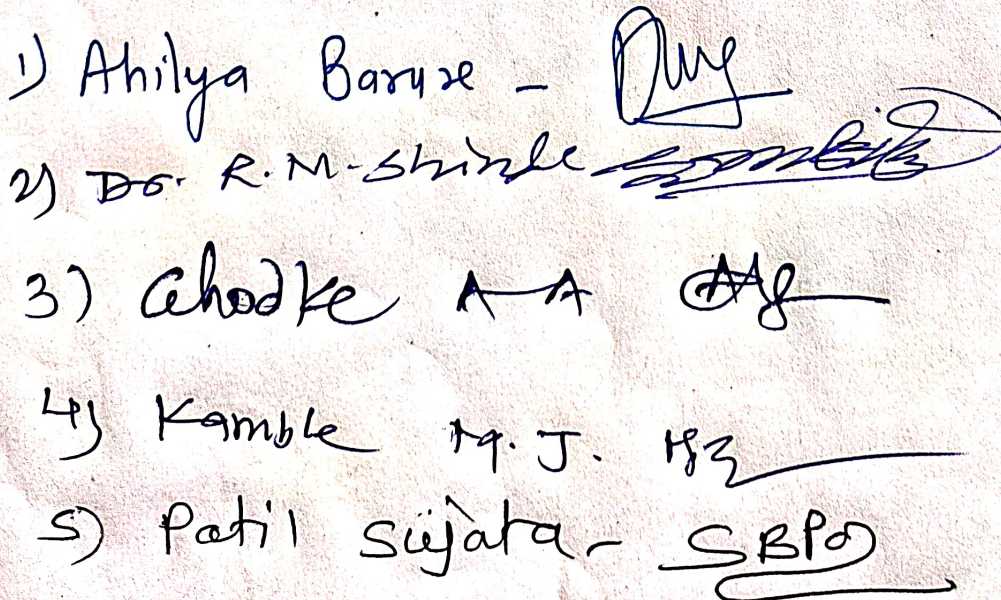 1) Ahilya Barure -
2) Dr. R.M. Shinde
3) Ghodke A A
4) Kamble M. J.
5) Patil Sujata - SBP